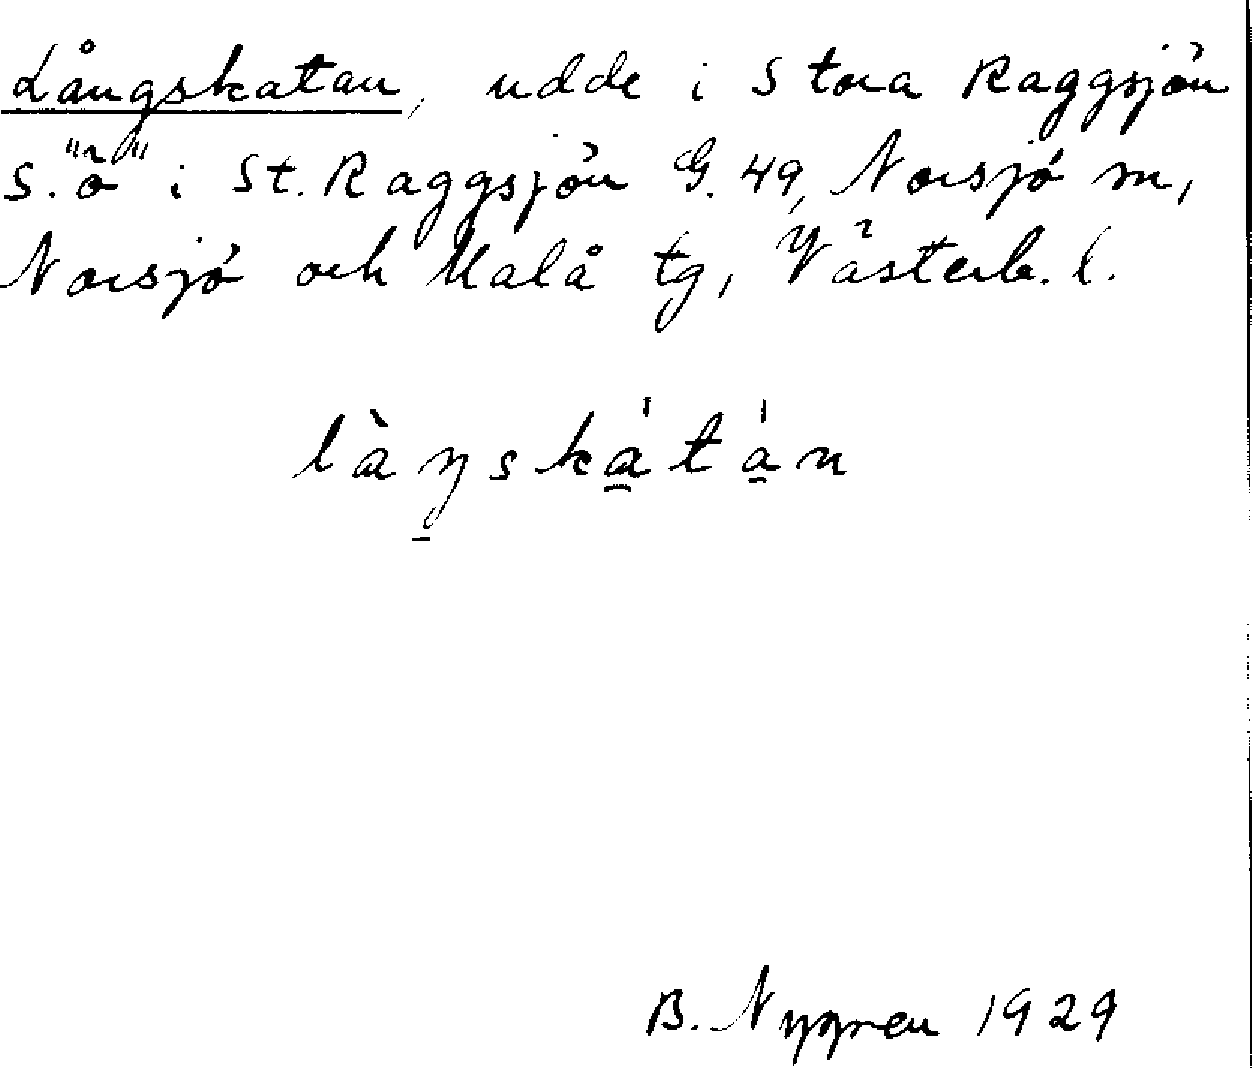 Långskatan, udde i Stora Raggsjön
S. "ö" i St. Raggsjön G. 49, Norsjö sn,
Norsjö och Malå tg, Västerb. l.
làŋskatan
B. Nygren 1929